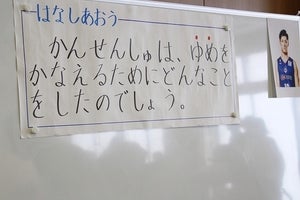 はなしあおう
かんせんしゅは、ゆめを
かなえるためにどんなこと
をしたのでしょう。